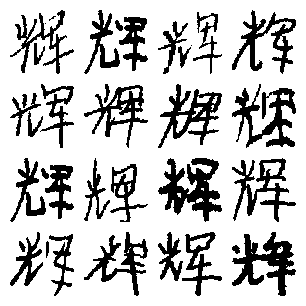 辉辉辉辉
辉辉辉辉
辉辉辉辉
辉辉辉辉